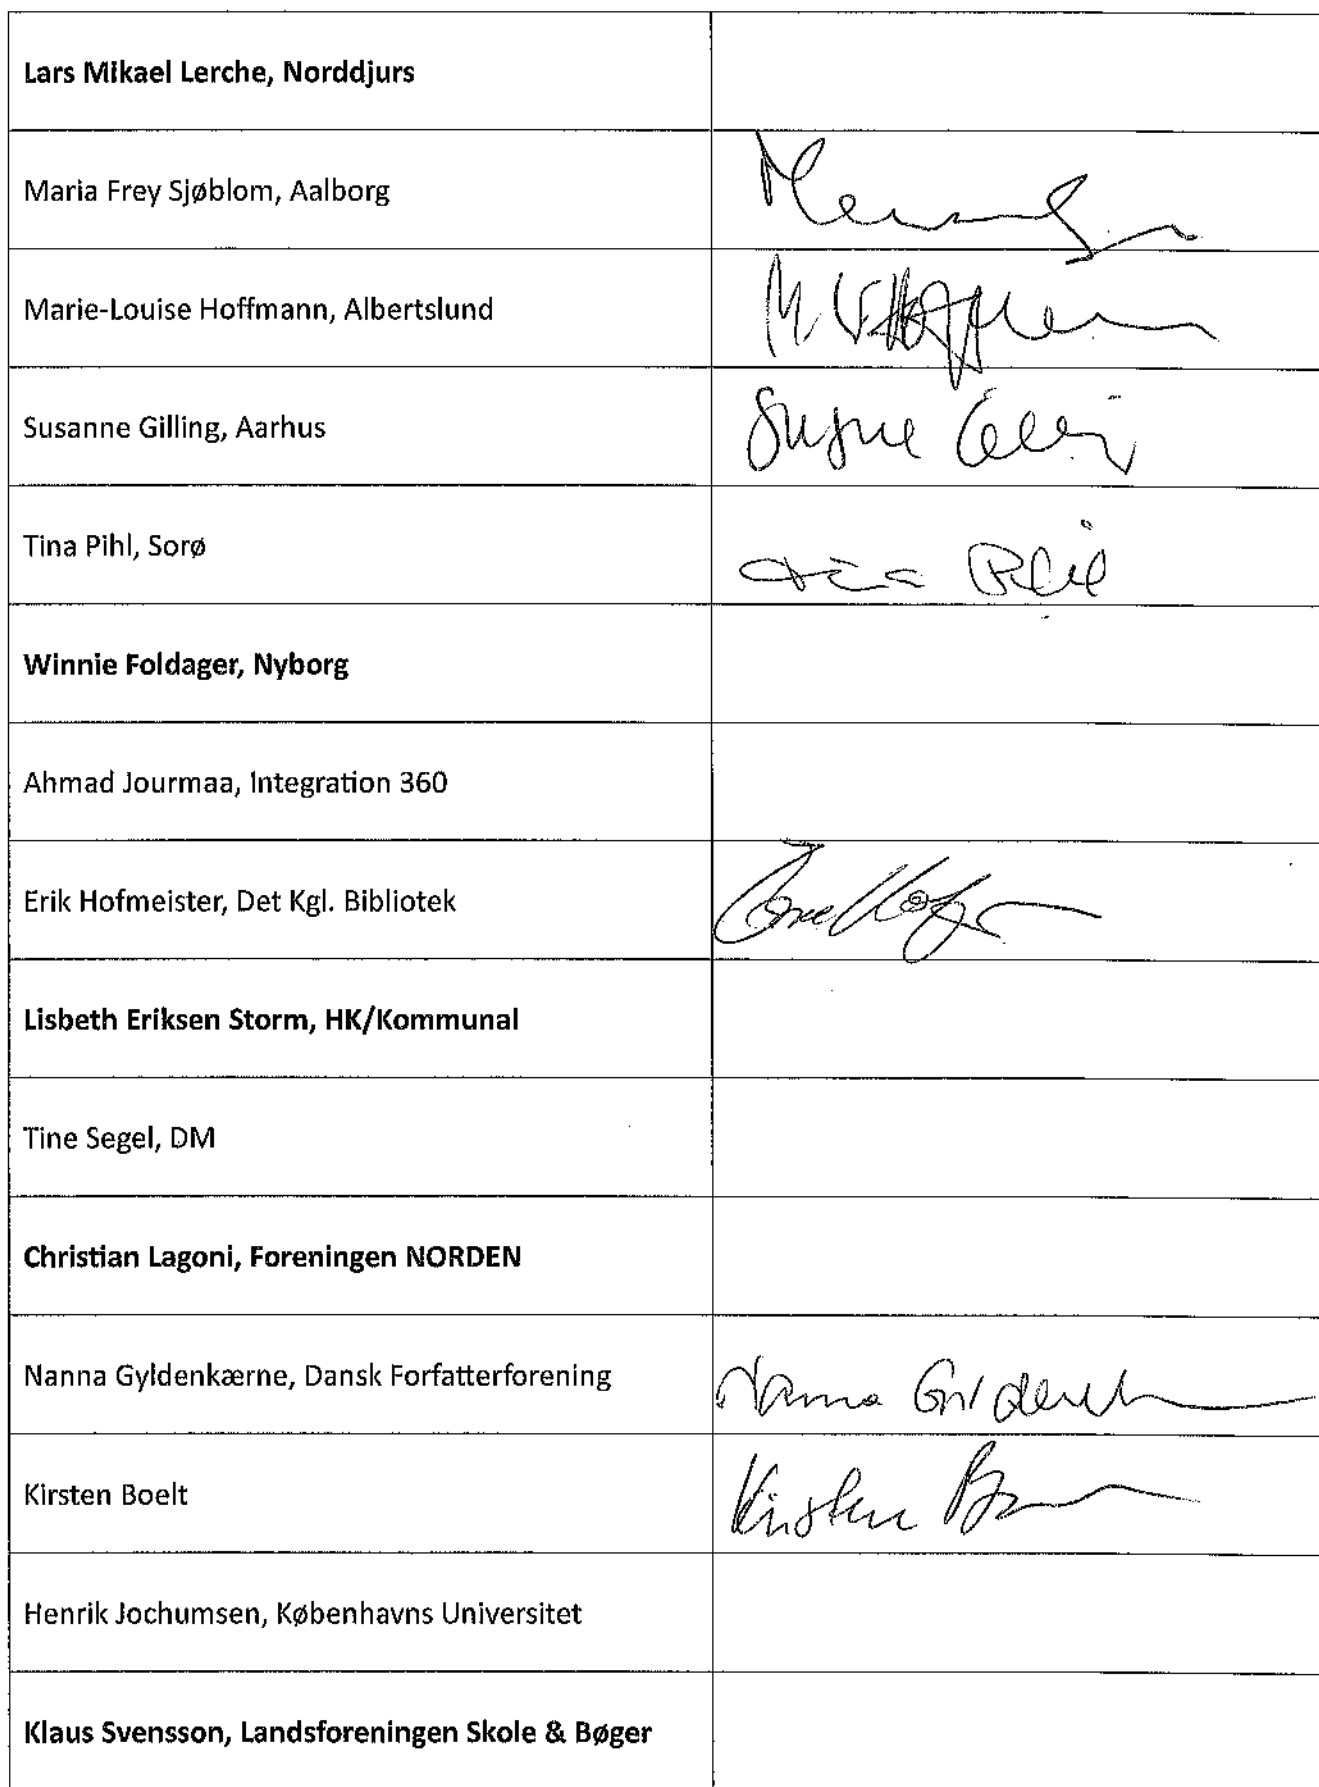 Lars Mikael Lerche, Norddjurs
Maria Frey Sjøblom, Aalborg
Marie-Louise Hoffmann, Albertslund
Susanne Gilling, Aarhus
Tina Pihl, Sorø
Winnie Foldager, Nyborg
Ahmad Jourmaa, Integration 360
Erik Hofmeister, Det Kgl. Bibliotek
Lisbeth Eriksen Storm, HK/Kommunal
Tine Segel, DM
Christian Lagoni, Foreningen NORDEN
Nanna Gyldenkærne, Dansk Forfatterforening
Nanna
Kirsten Boelt
Kirsten
Henrik Jochumsen, Københavns Universitet
Klaus Svensson, Landsforeningen Skole & Bøger